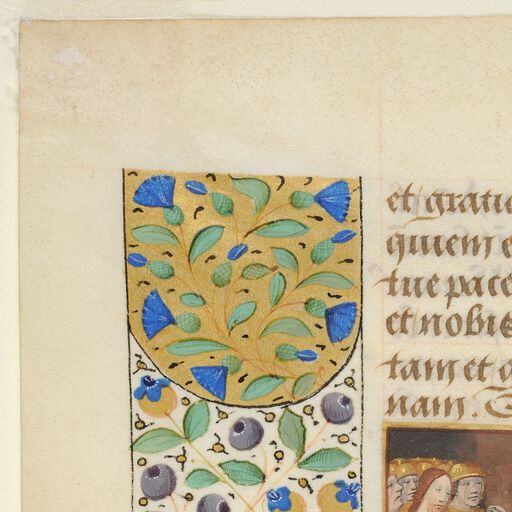 et gratia
quiem e
tue pace
et nobis
tam et g
nam. S